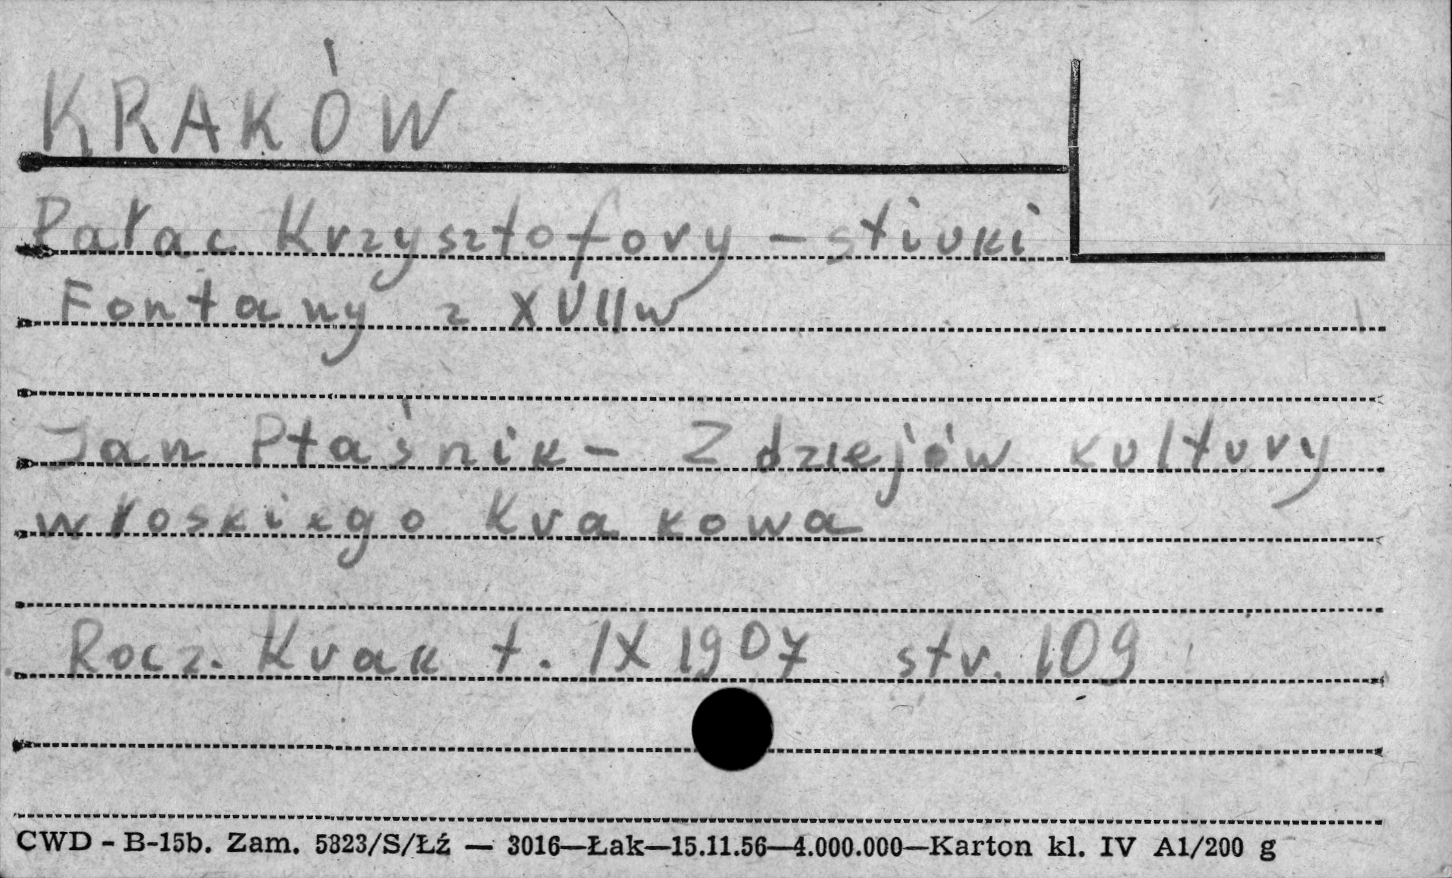 KRAKÓW
Pałac Krzysztofory – stiuki
Fontany z XVIIw
Jan Ptaśnik – Z dziejów kultury
włoskiego Krakowa
Rocz. Krak t. IX 1907 str. 109
CWD - B-15b. Zam. 5323/S/Łź — 3016—Łak—15.11.56—4.000.000—Karton kl. IV A1/200 g